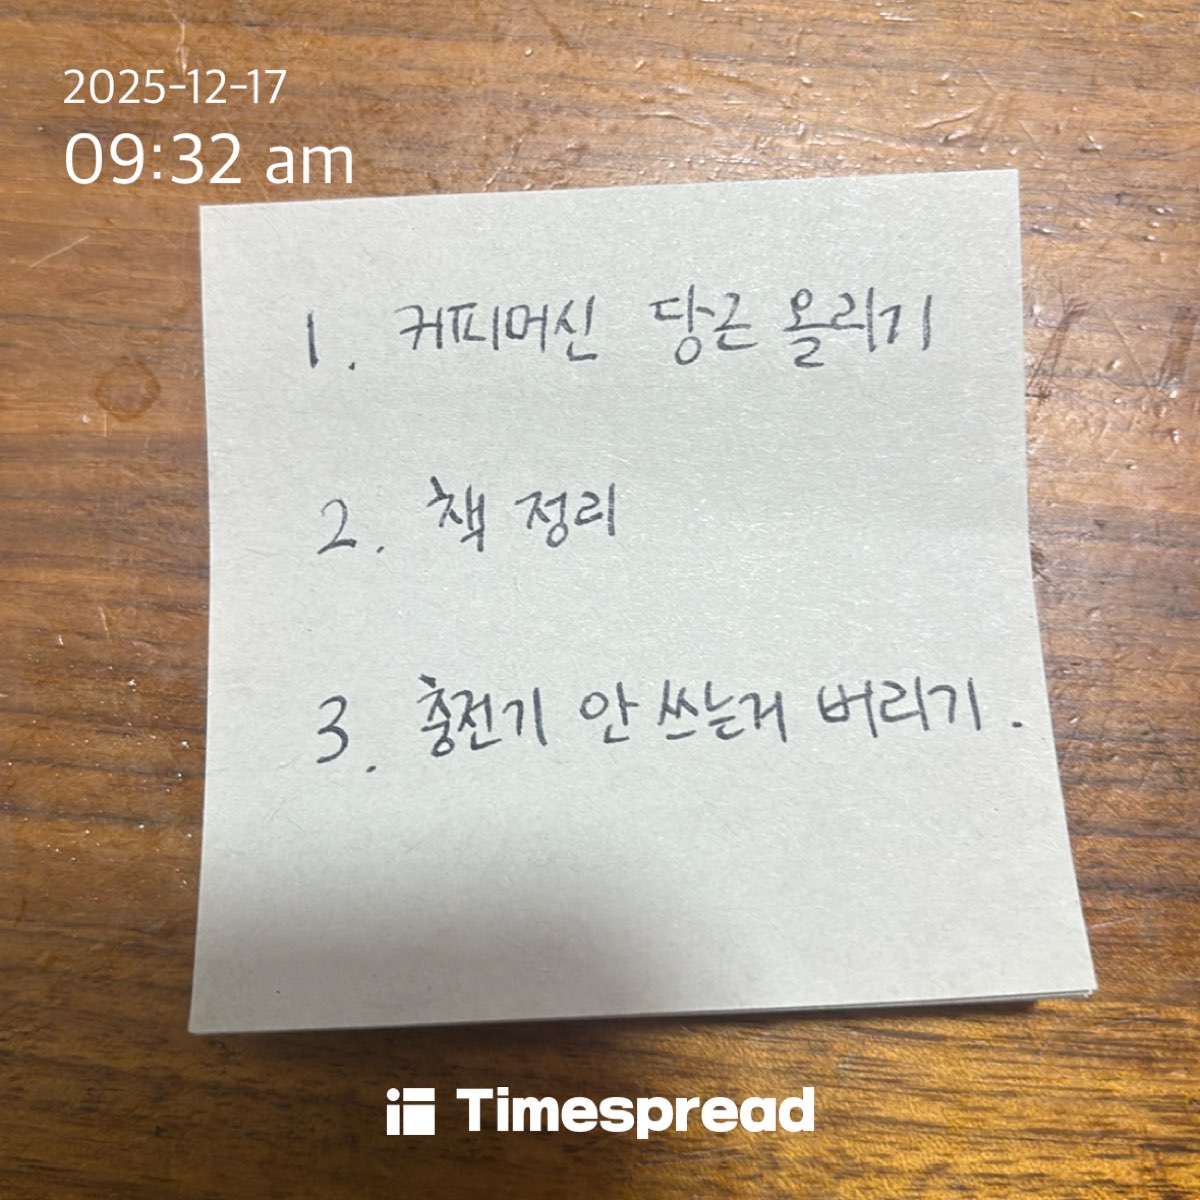 2025-12-17
09:32 am
1. 커피머신 당근 올리기
2. 책 정리
3. 충전기 안 쓰는거 버리기.
Timespread